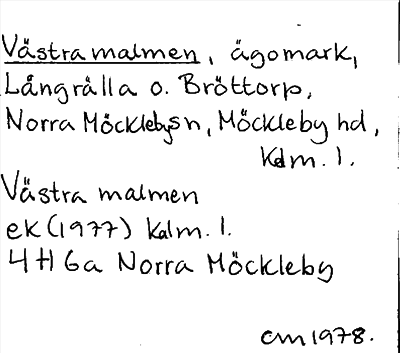 Västra malmen, ägomark,
Långrälla o. Bröttorp,
Norra Möcklebysn, Möckleby hd,
Kalm. l.
Västra malmen
ek (1977) Kalm. l.
4 H 6a Norra Möckleby
cm 1978.